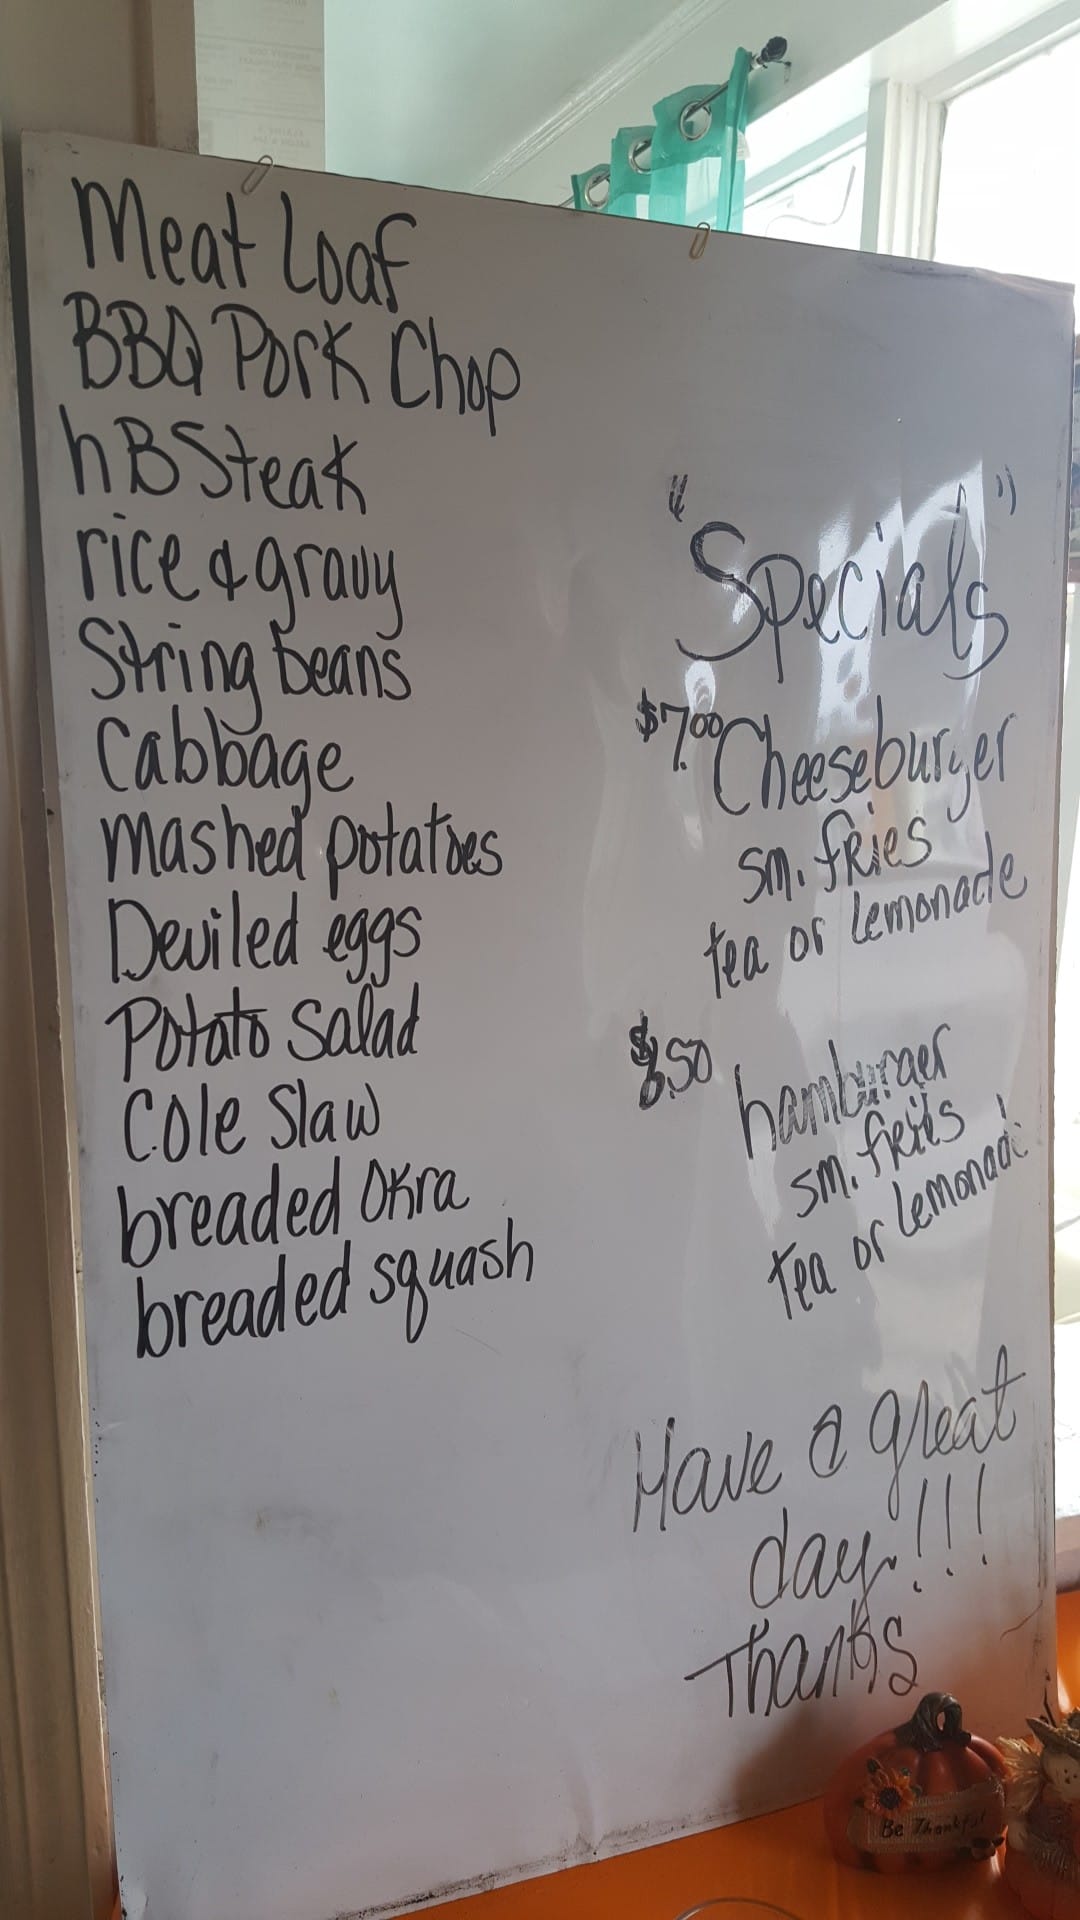 Meat Loaf
BBQ Pork Chop
hB Steak
rice & gravy
String beans
Cabbage
mashed potatoes
Deviled eggs
Potato Salad
Cole Slaw
breaded Okra
breaded squash
"Specials"
$7.00 Cheeseburger
sm. fries
tea or lemonade
hamburger
sm. fries
tea or lemonade
Have a great
day!!!
Thanks
Be Thankful